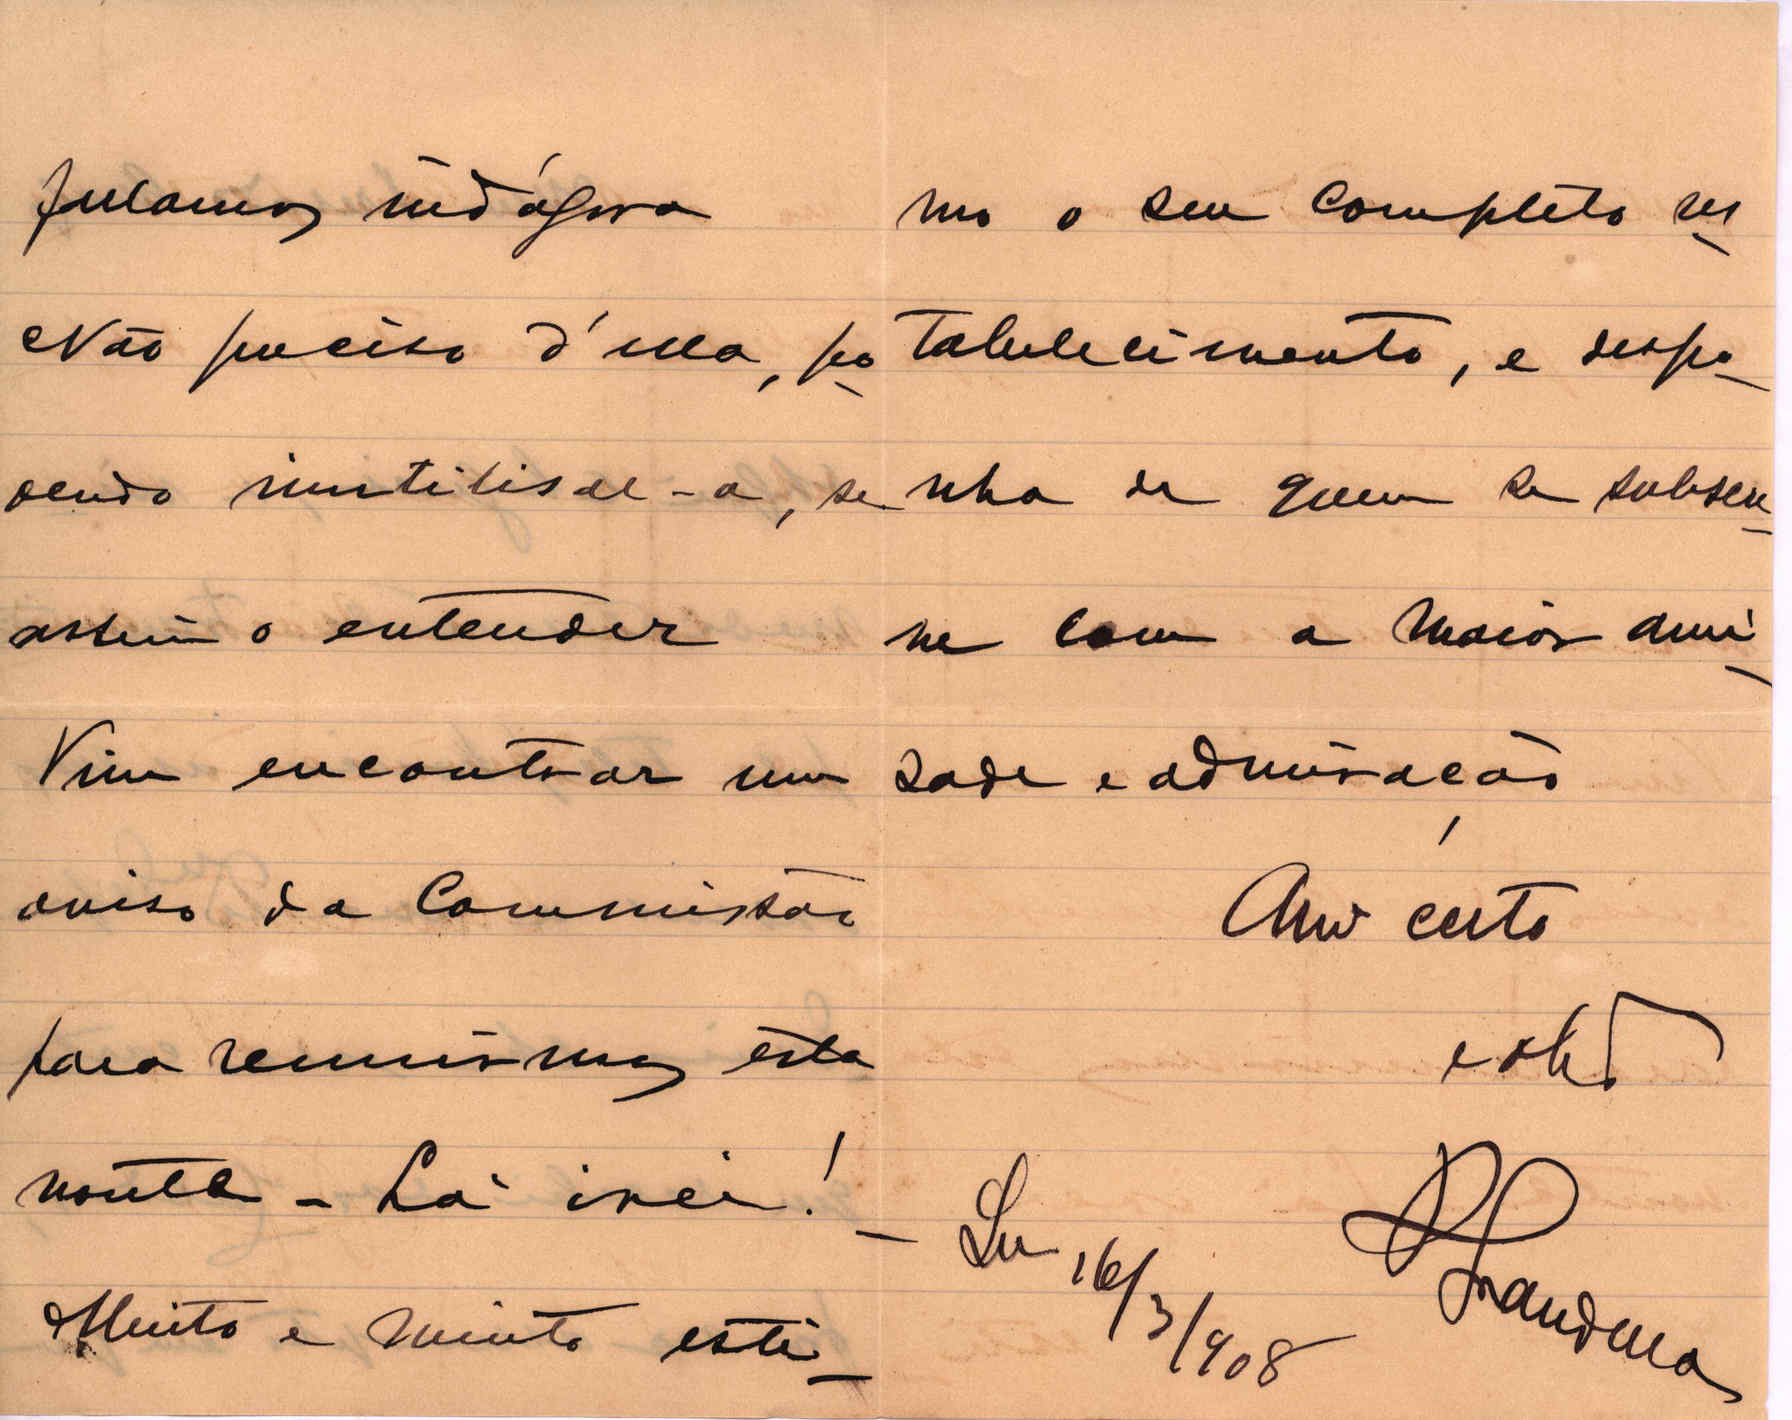 fallamos indágora
Não preciso d'ella, po-
dendo inutilisal-a, se
assim o entender
Vim encontrar um
aviso da Commissão
para reunirmos esta
noute - Lá irei! -
Muito e muito esti-
mo o seu completo res-
tabelecimento, e despo-
nha de quem se subscre-
ve com a maior ami-
sade e admiração
Amº certo
e obº
Grandella
Lx 16/3/908